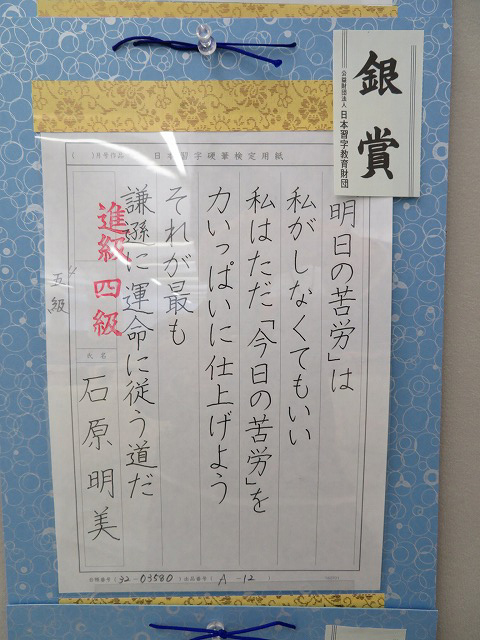 銀賞
公益財団法人 日本習字教育財団
日本習字硬筆検定用紙
月号作品
明日の苦労」は
私がしなくてもいい
私はただ「今日の苦労」を
力いっぱいに仕上げよう
それが最も
謙遜に運命に従う道だ
進級 四級
五級
氏名
石原明美
(32-03580) 出品番号 (A-12)